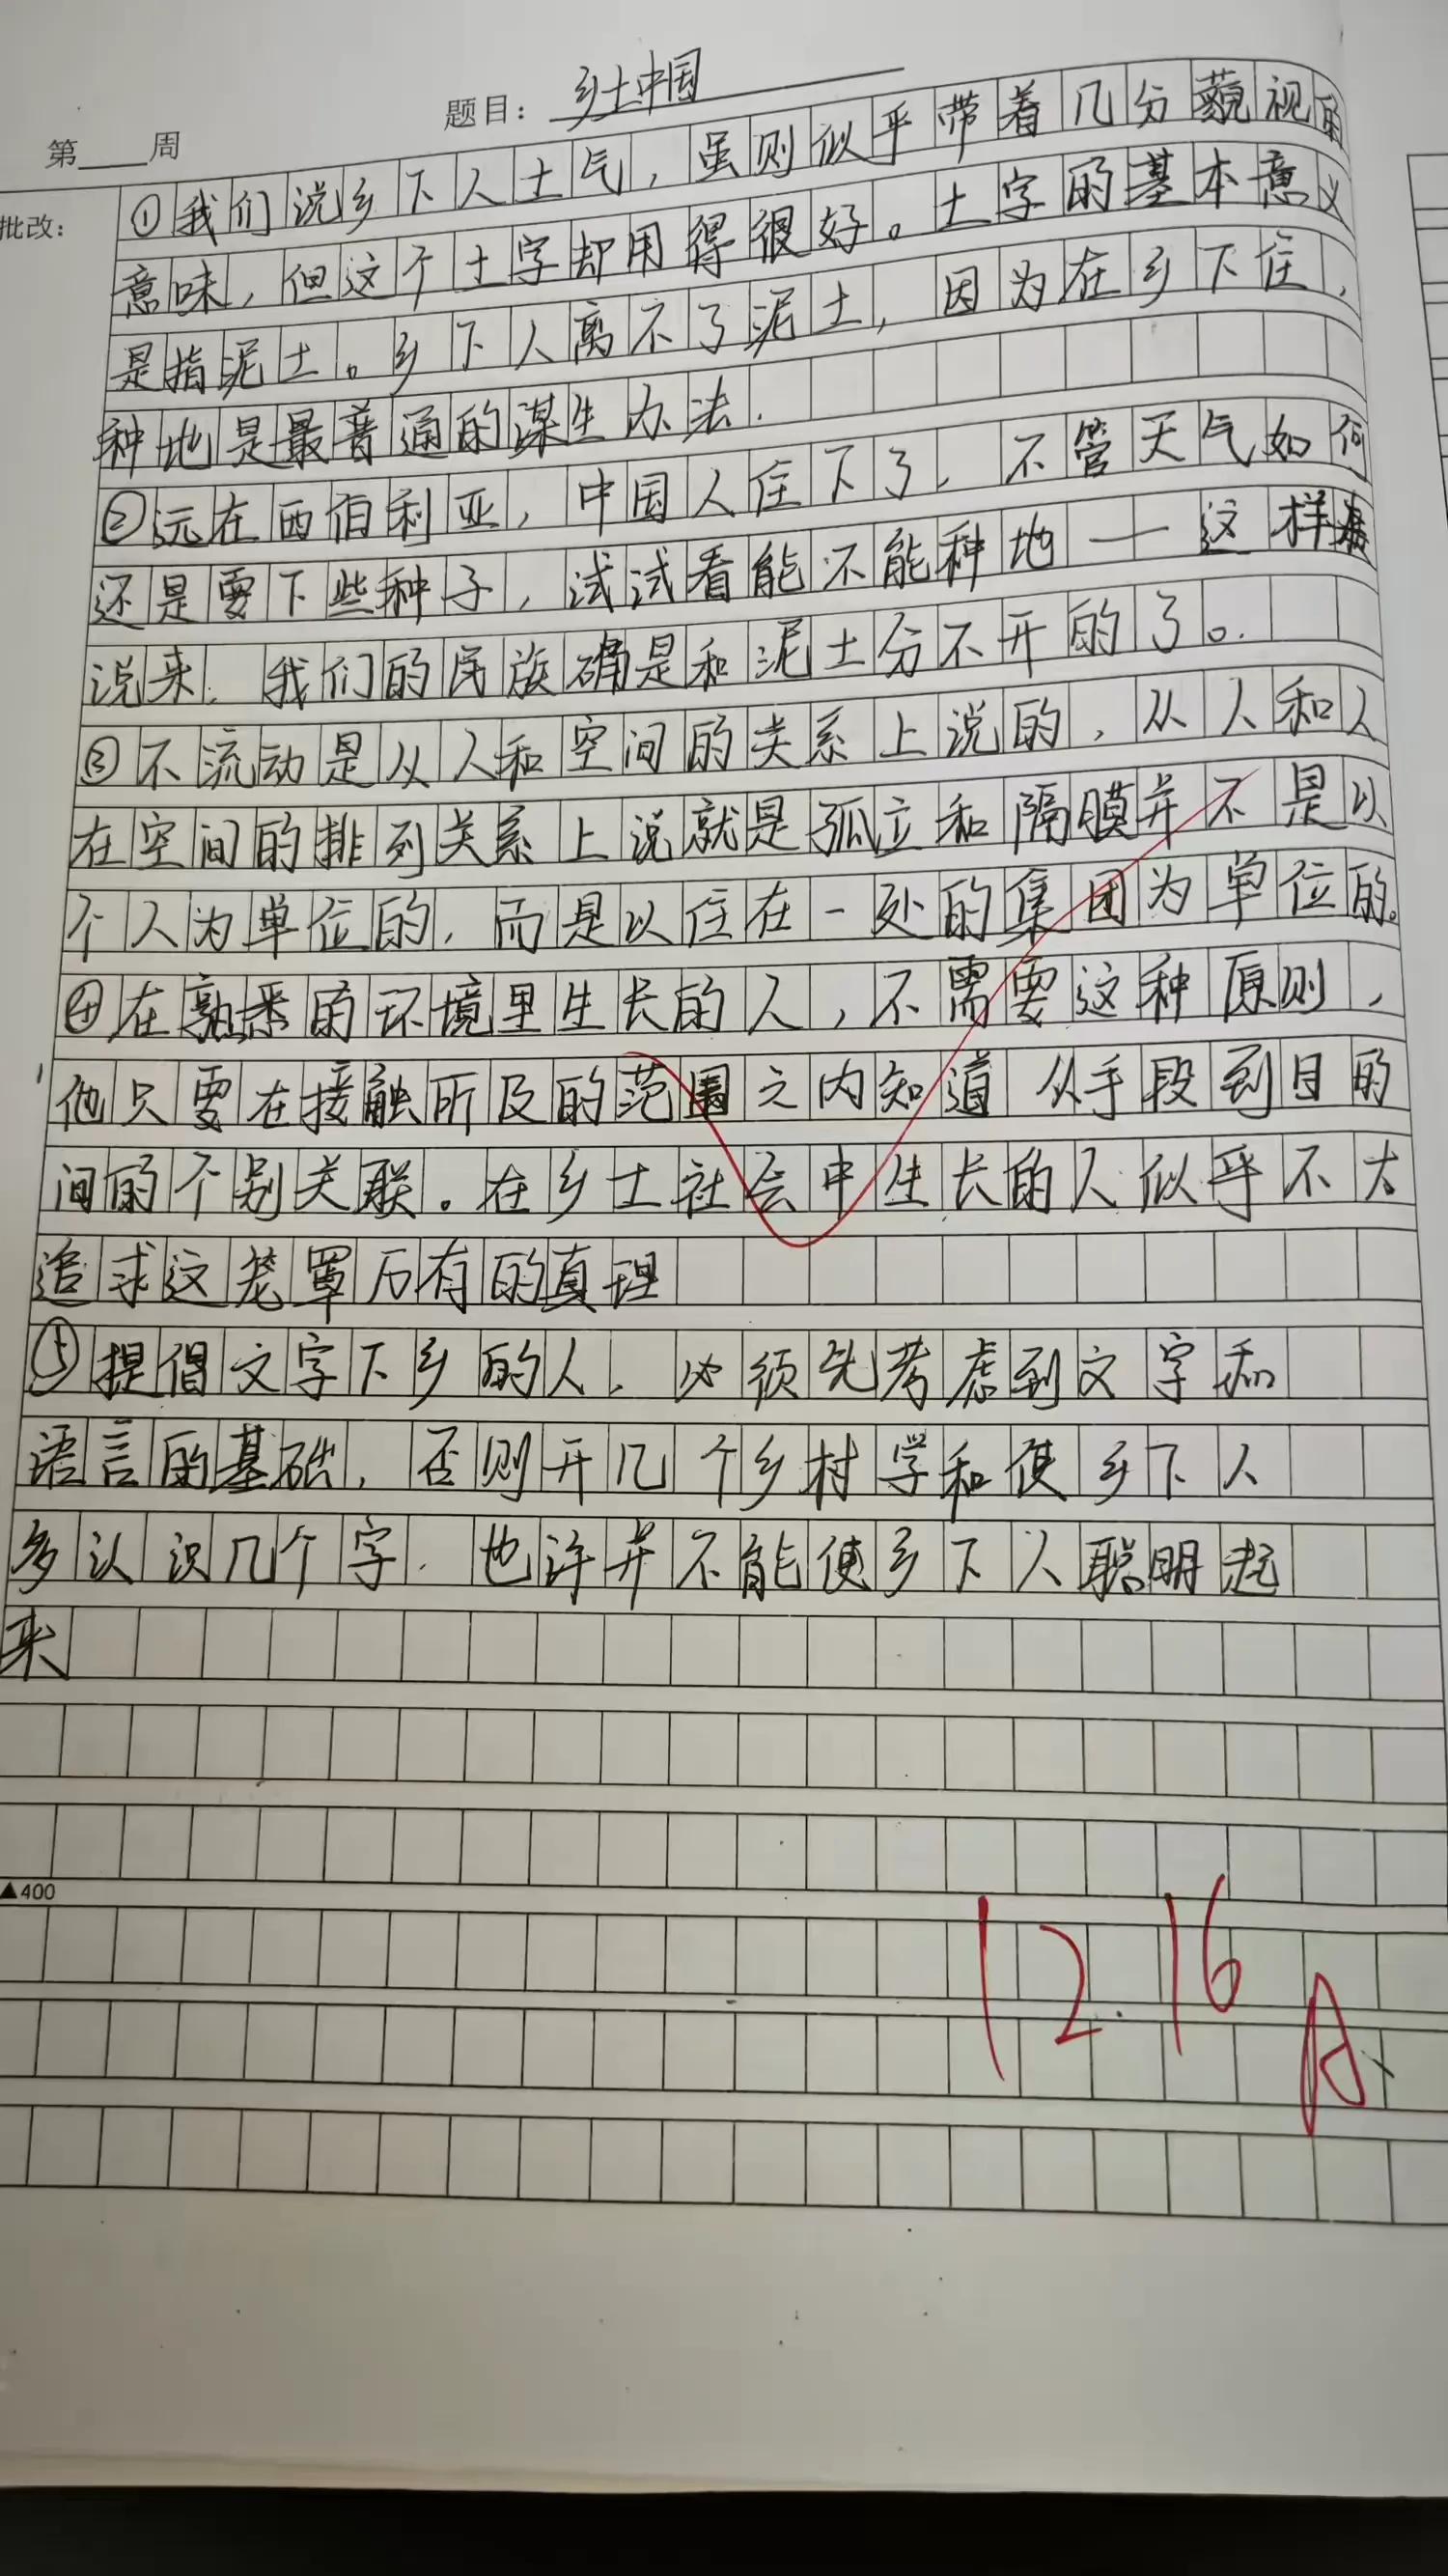 题目：乡土中国
第 周
批改：
①我们说乡下人土气，虽则似乎带着几分藐视的
意味，但这个土字却用得很好。土字的基本意义
是指泥土。乡下人离不了泥土，因为在乡下住，
种地是最普通的谋生办法．
②远在西伯利亚，中国人住下了，不管天气如何
还是要下些种子，试试看能不能种地——这样
说来．我们的民族确是和泥土分不开的了。
③不流动是从人和空间的关系上说的，从人和人
在空间的排列关系上说就是孤立和隔膜并不是以
个人为单位的，而是以住在一处的集团为单位的。
④在熟悉的环境里生长的人，不需要这种原则，
他只要在接触所及的范围之内知道 从手段到目的
间的个别关联。在乡土社会中生长的人似乎不太
追求这笼罩万有的真理
⑤提倡文字下乡的人，必须先考虑到文字和
语言的基础，否则开几个乡村学和使乡下人
多认识几个字．也许并不能使乡下人聪明起
来
▲400
12.16
A